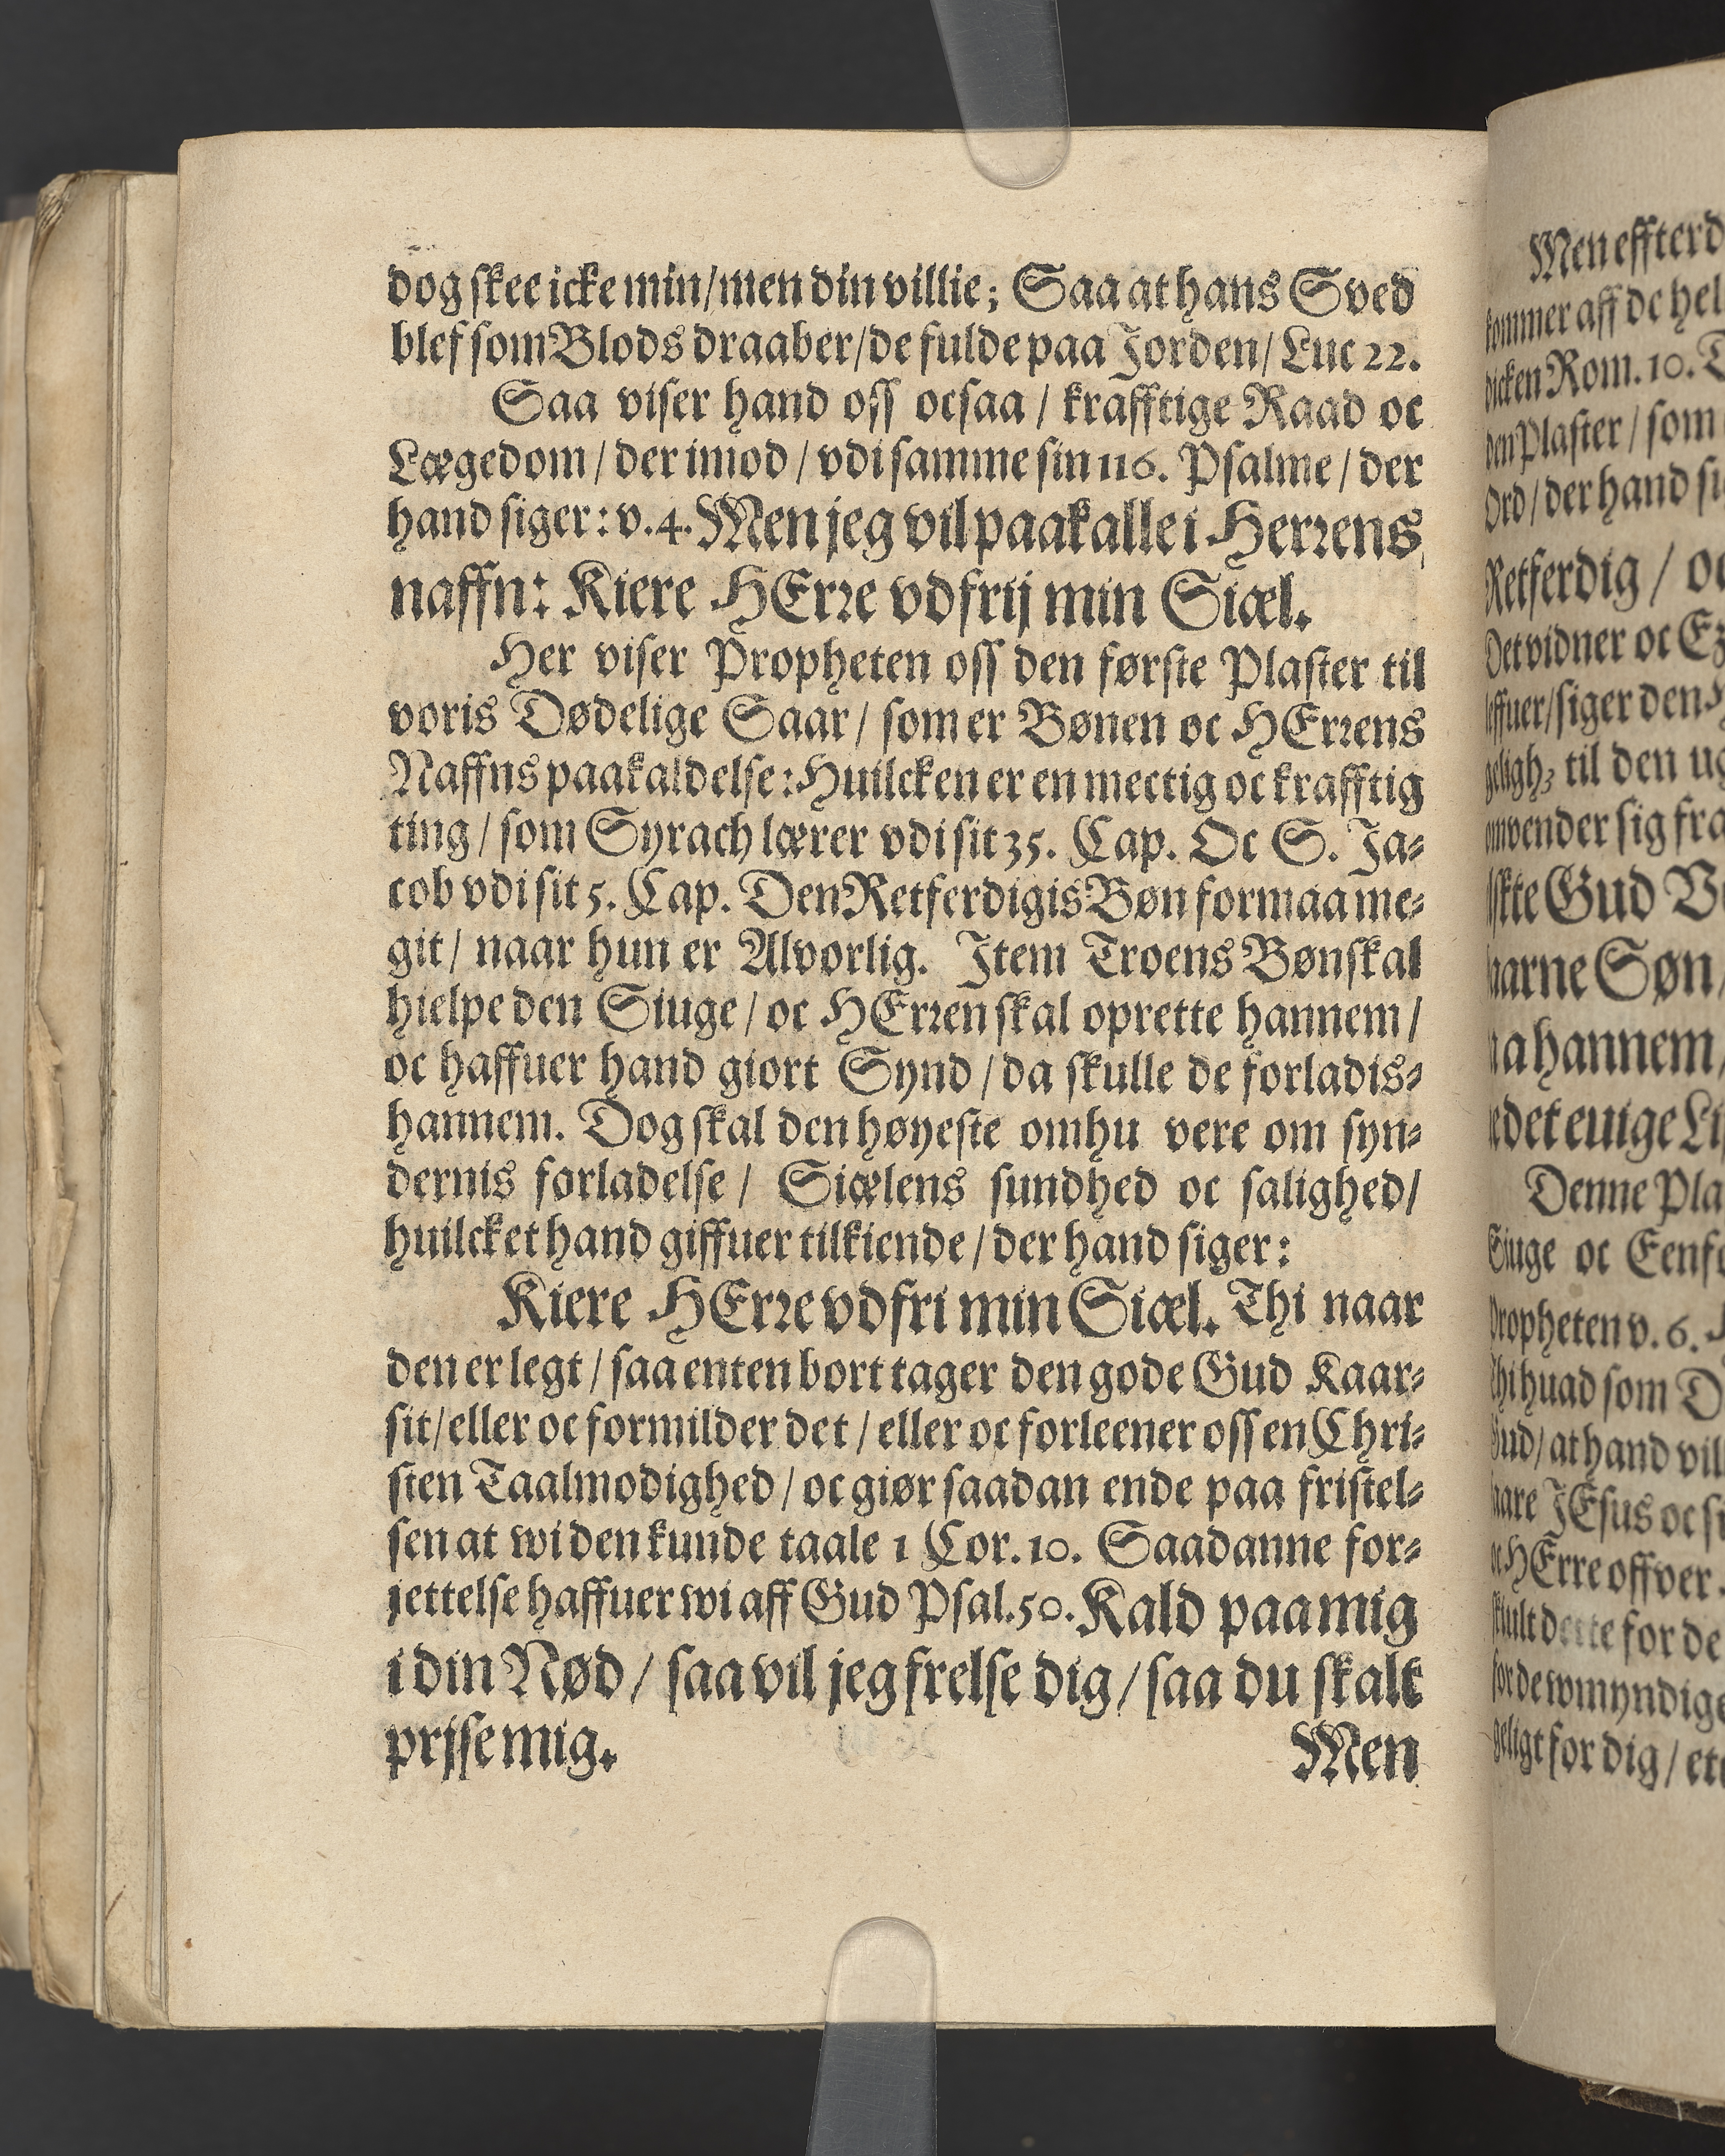 dog skee icke min/ men din villie; Saa at hans Sved
blef som Blods draaber/ de fulde paa Jorden/ Luc 22.
Saa viser hand oss ocsaa / krafftige Raad oc
Lægedom / der imod / vdi samme sin 116. Psalme / der
hand siger: v. 4. Men jeg vil paakalle i Herrens
naffn: Kiere HErre vdfrij min Siæl.
Her viser Propheten oss den første Plaster til
voris Dødelige Saar / som er Bønen oc HErrens
Naffns paakaldelse: Huilcken er en mectig oc krafftig
ting / som Syrach lærer vdi sit 35. Cap. Oc S. Ja-
cob vdi sit 5. Cap. Den Retferdigis Bøn formaa me-
git / naar hun er Alvorlig. Item Troens Bøn skal
hielpe den Siuge / oc HErren skal oprette hannem /
oc haffuer hand giort Synd / da skulle de forladis-
hannem. Dog skal den høyeste omhu vere om syn-
dernis forladelse / Siælens sundhed oc salighed/
huilcket hand giffuer tilkiende / der hand siger:
Kiere HErre vdfri min Siæl. Thi naar
den er legt / saa enten bort tager den gode Gud Kaar-
sit/ eller oc formilder det / eller oc forleener oss en Chri-
sten Taalmodighed / oc giør saadan ende paa fristel-
sen at wi den kunde taale 1 Cor. 10. Saadanne for-
jettelse haffuer wi aff Gud Psal. 50. Kald paa mig
i din Nød / saa vil jeg frelse dig / saa du skalt
prjse mig.
Men
Men effterd
kommer aff de hel
Rom. 10.
den Plaster / som
Ord / der hand
Retferdig / oc
Det vidner oc Ez
siger den
til den
omvender sig fra
Gud
Søn
hannem
det euige
Denne Pla
Siuge oc Eenfo
Propheten v. 6.
Thi huad som
Gud / at hand vil
JEsus oc
HErre offver
for de
for de wmyndige
for dig /